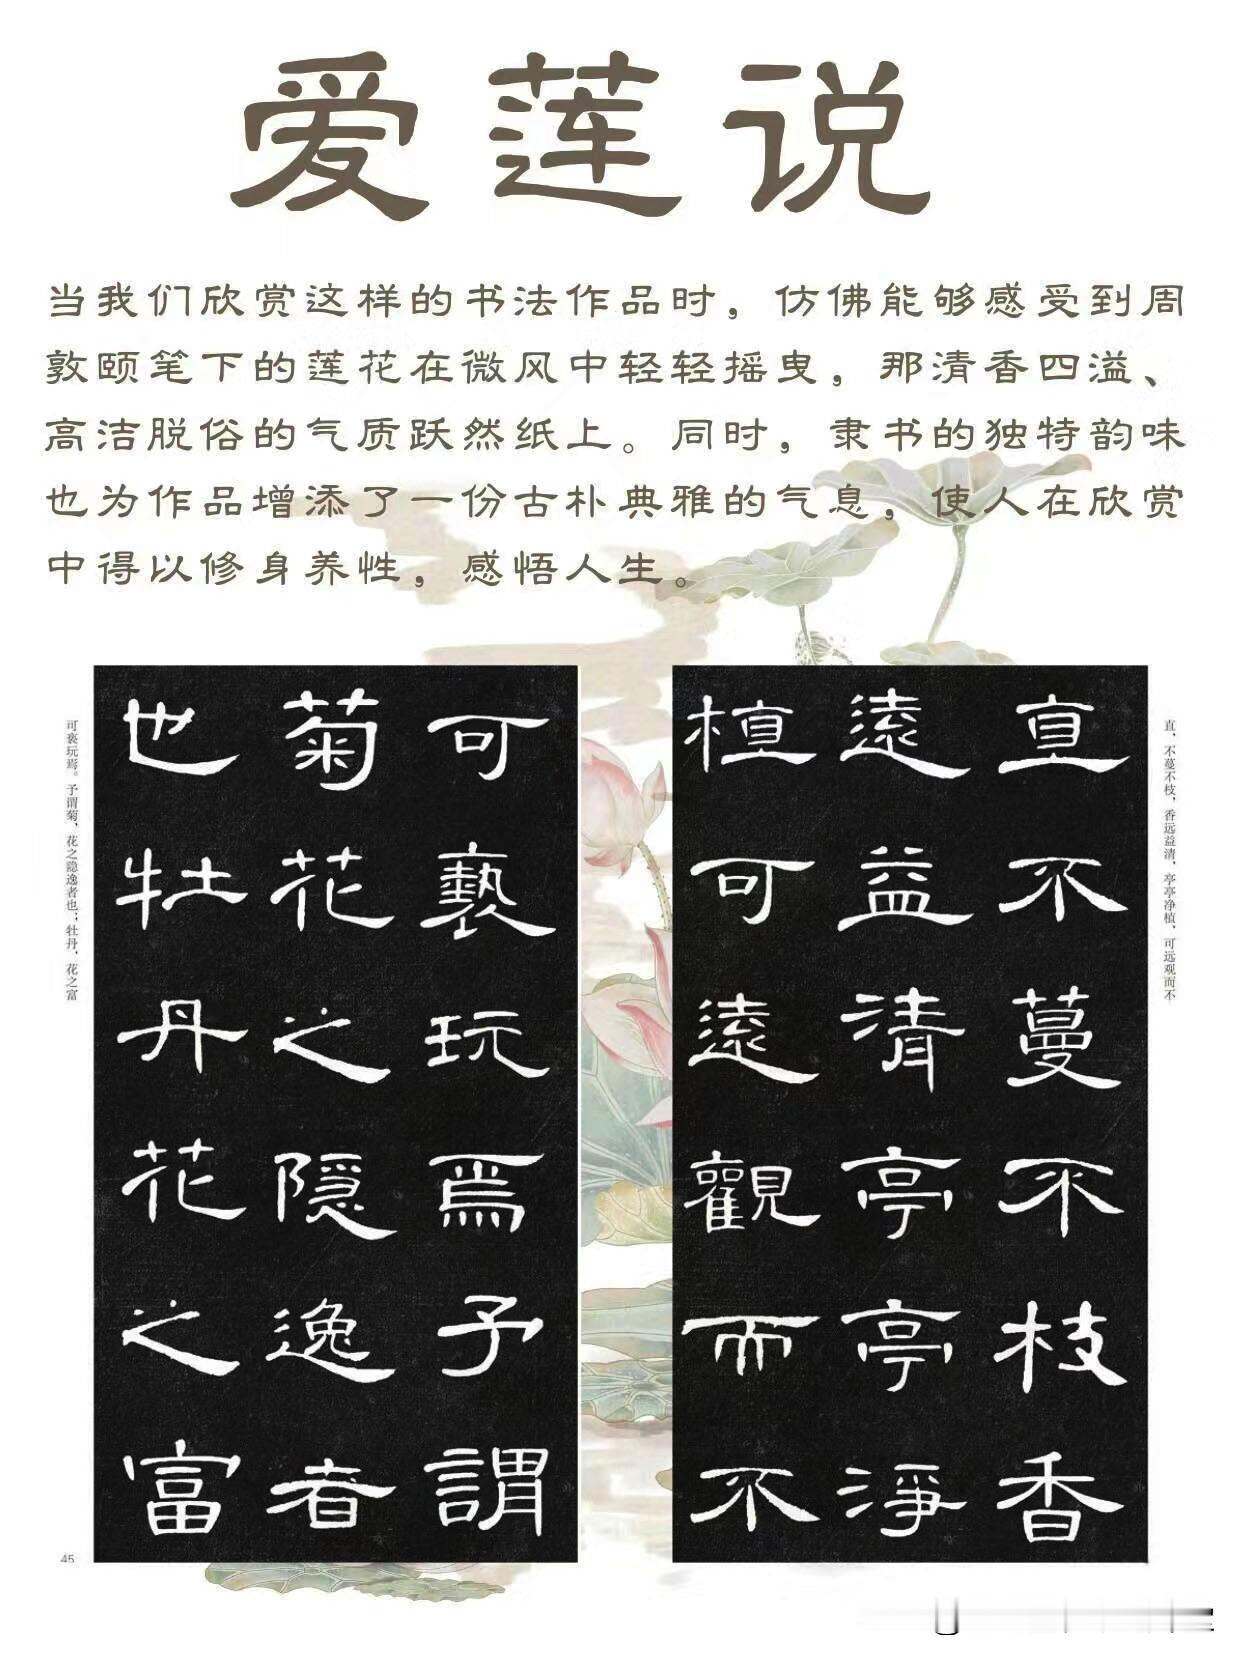 爱莲说
当我们欣赏这样的书法作品时，仿佛能够感受到周
敦颐笔下的莲花在微风中轻轻摇曳，那清香四溢、
高洁脱俗的气质跃然纸上。同时，隶书的独特韵味
也为作品增添了一份古朴典雅的气息，使人在欣赏
中得以修身养性，感悟人生。
直、不蔓不枝，香远益清，亭亭净植，可远观而不
直不蔓不枝香
遠益清亭亭淨
植可遠觀而不
可褻玩焉予謂
菊花之隱逸者
也牡丹花之富
可亵玩焉。予谓菊，花之隐逸者也；牡丹，花之富
45